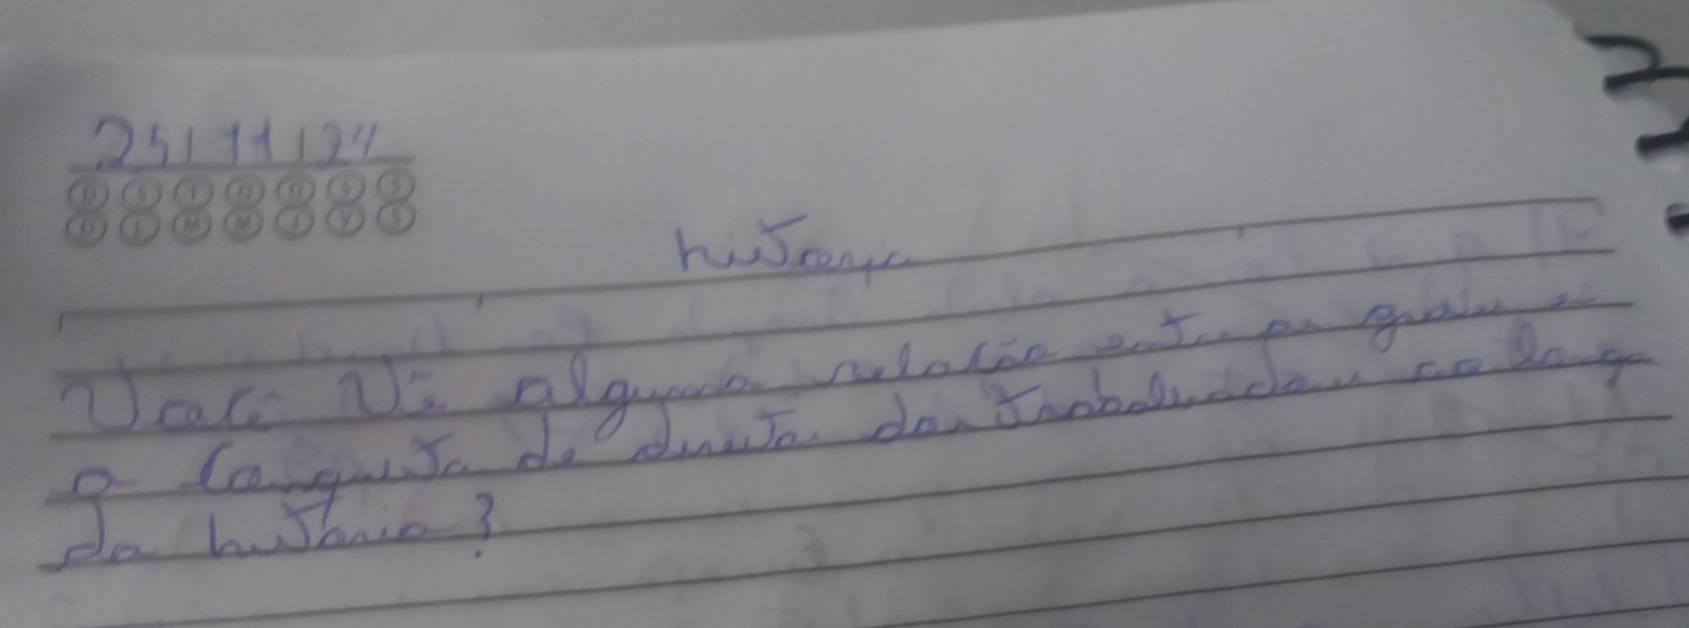 25/11/24
D S T Q Q S S
D L M M J V S
história
Você vê alguma relação entre as greves e
a conquista de direito dos trabalhadores ao longo
da história?